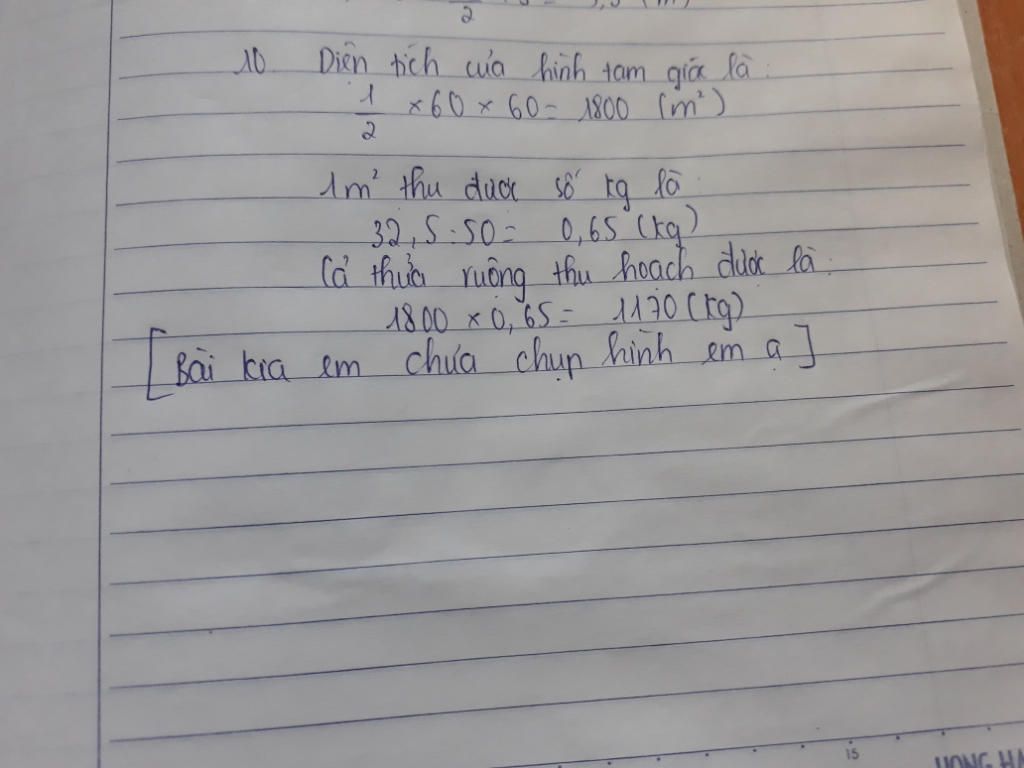 10 Diện tích của hình tam giác là:
1/2 × 60 × 60 = 1800 (m²)
1m² thu được số kg là:
32,5 : 50 = 0,65 (kg)
Cả thửa ruộng thu hoạch được là:
1800 × 0,65 = 1170 (kg)
[Bài kia em chưa chụp hình em ạ]
15